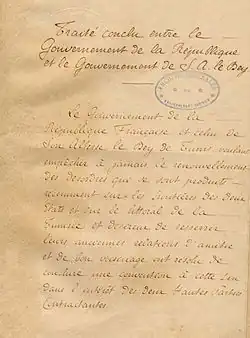 Traité conclu entre le
Gouvernement de la République
et le Gouvernement de S. A. le Bey
Le Gouvernement de la
République Française et celui de
Son Altesse le Bey de Tunis voulant
empêcher à jamais le renouvellement
des désordres qui se sont produits
récemment sur les frontières des deux
États et sur le littoral de la
Tunisie et désireux de resserrer
leurs anciennes relations d'amitié
et de bon voisinage ont résolu de
conclure une convention à cette fin
dans l'intérêt des deux Hautes Parties
Contractantes.